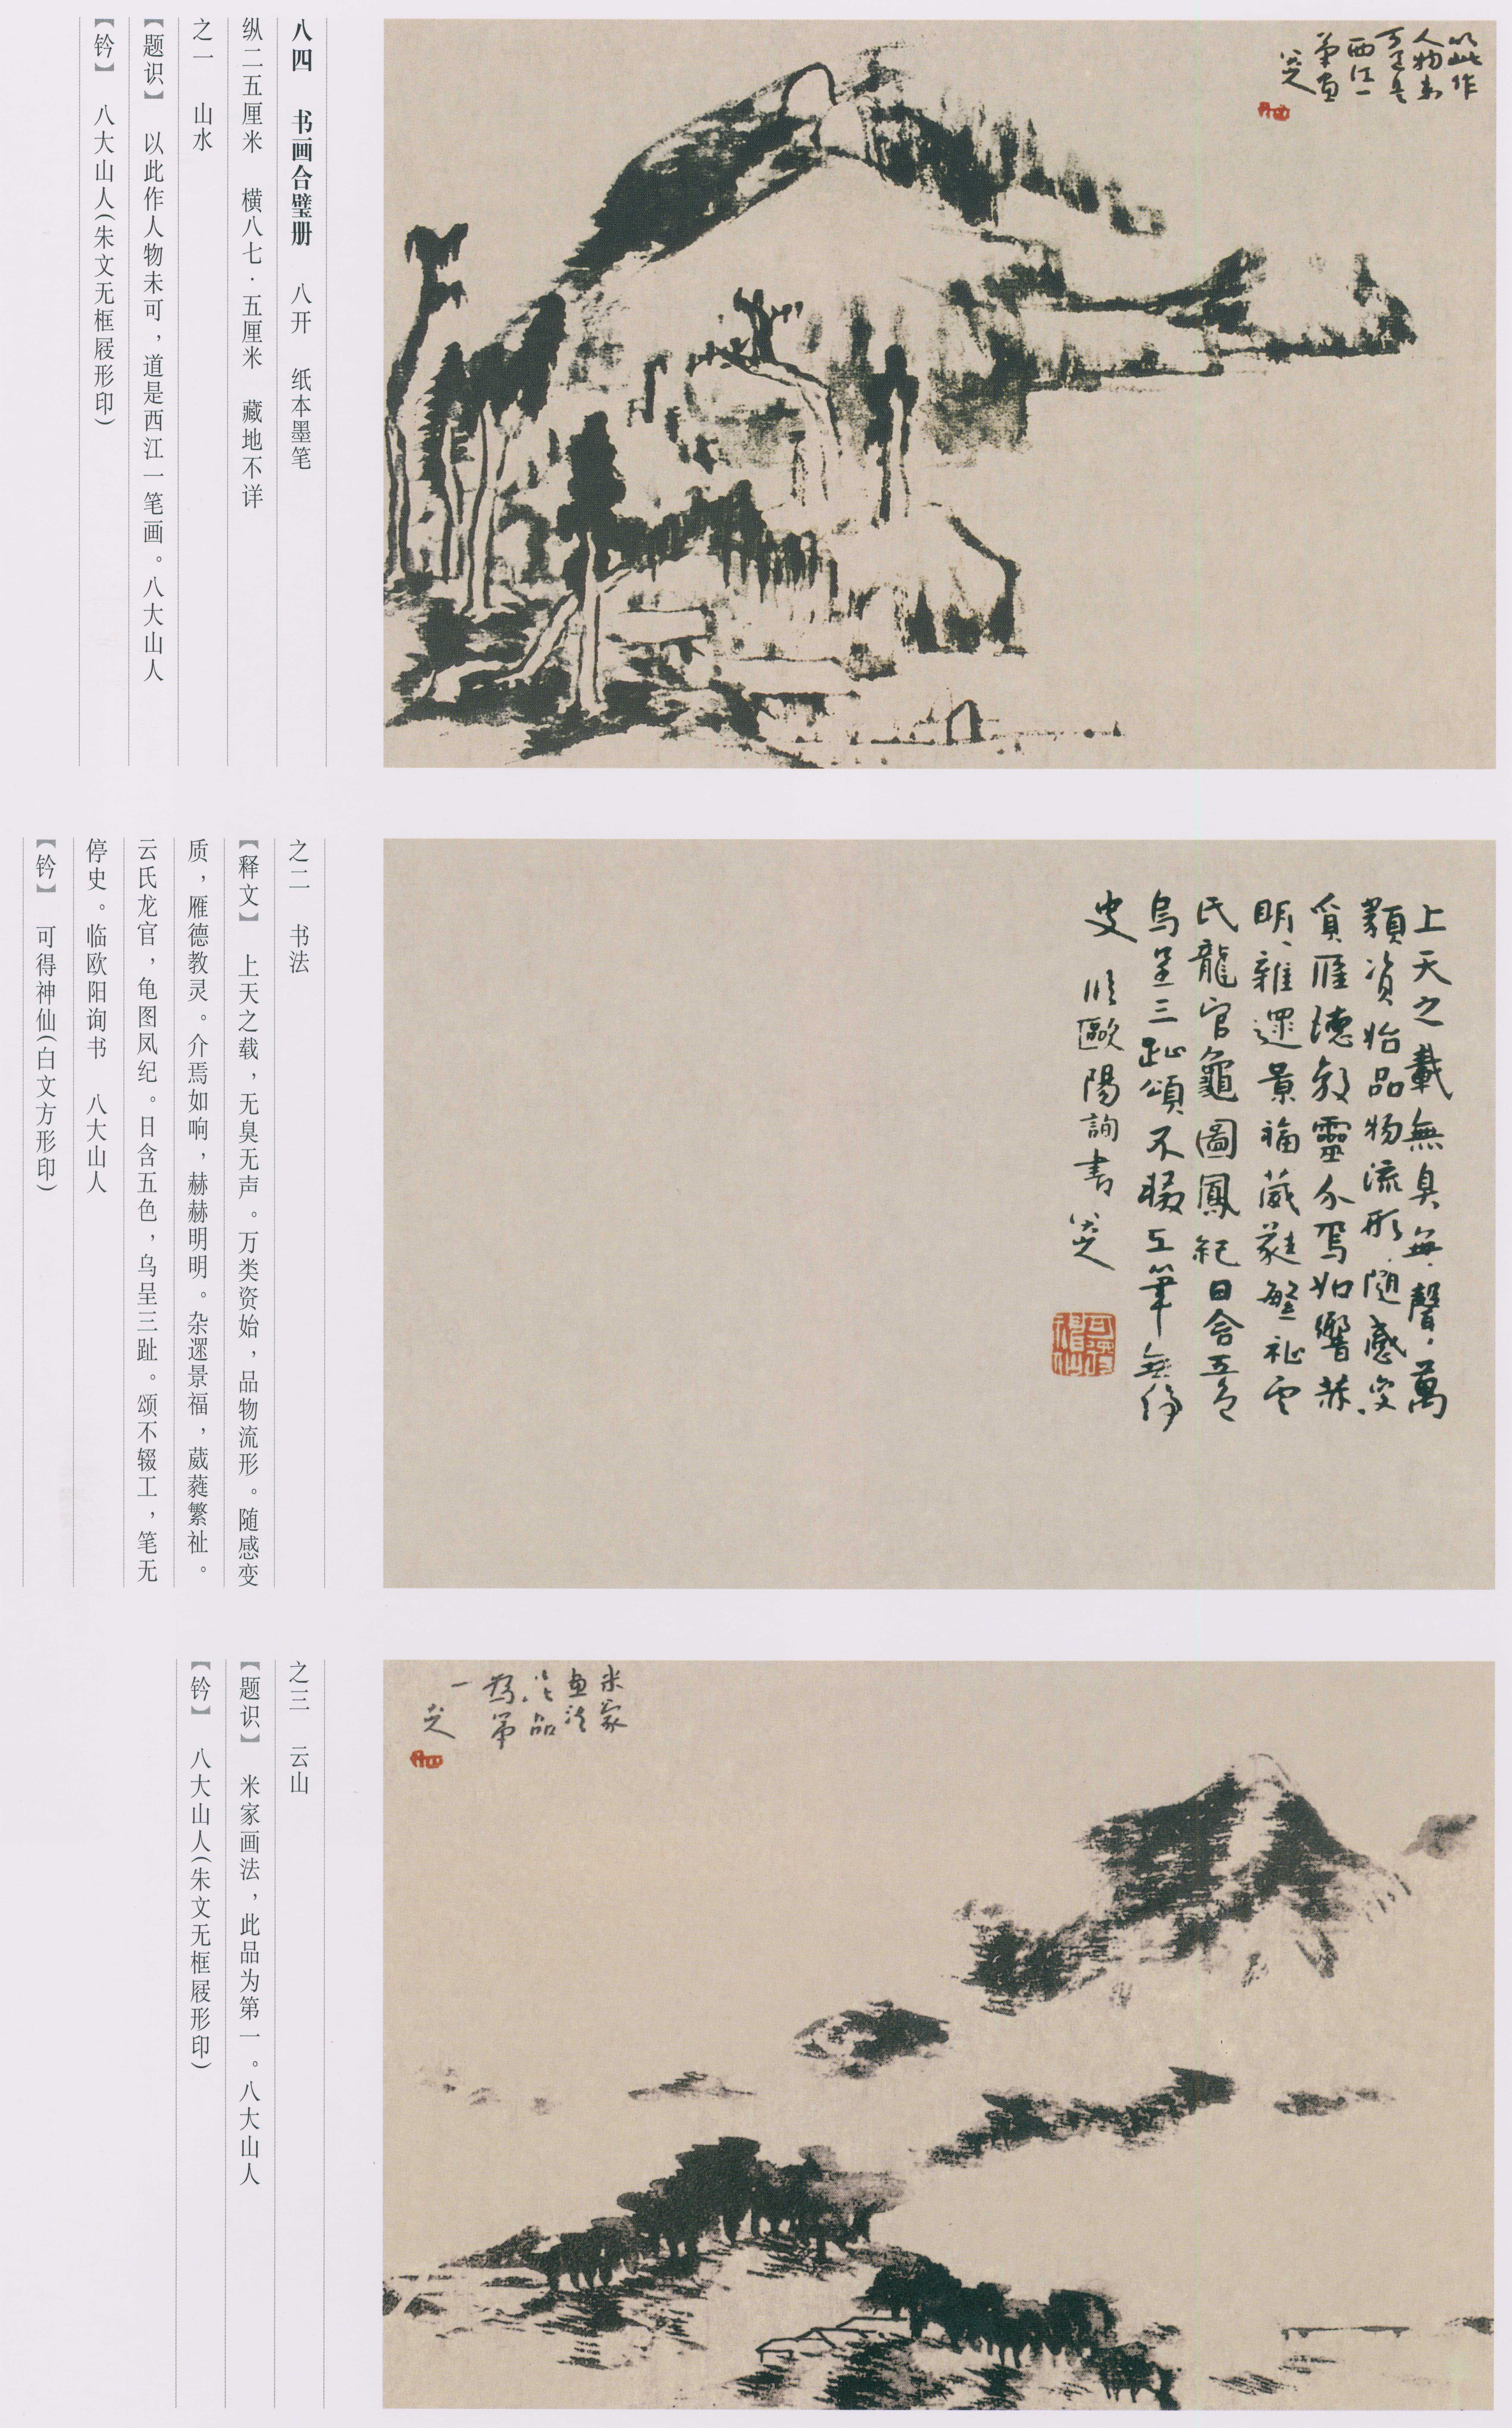 八四 书画合璧册 八开 纸本墨笔
纵二五厘米 横八七·五厘米 藏地不详
之一 山水
【题识】 以此作人物未可，道是西江一笔画。八大山人
【钤】 八大山人(朱文无框屐形印)
以此作
人物未
可道是
西江一
笔画
八大山人
之二 书法
【释文】 上天之载，无臭无声。万类资始，品物流形。随感变
质，雁德教灵。介焉如响，赫赫明明。杂遝景福，葳蕤繁祉。
云氏龙官，龟图凤纪。日含五色，乌呈三趾。颂不辍工，笔无
停史。临欧阳询书 八大山人
【钤】 可得神仙(白文方形印)
上天之載無臭無聲萬
類資始品物流形随感变
質雁德教靈介焉如響赫
明雜遝景福葳蕤繁祉雲
氏龍官龜圖鳳紀日含五色
烏呈三趾頌不輟工筆無停
史 临歐陽詢書 八大山人
可得神仙
之三 云山
【题识】 米家画法，此品为第一。八大山人
【钤】 八大山人(朱文无框屐形印)
米家
画法
此品
為第
一
八大山人